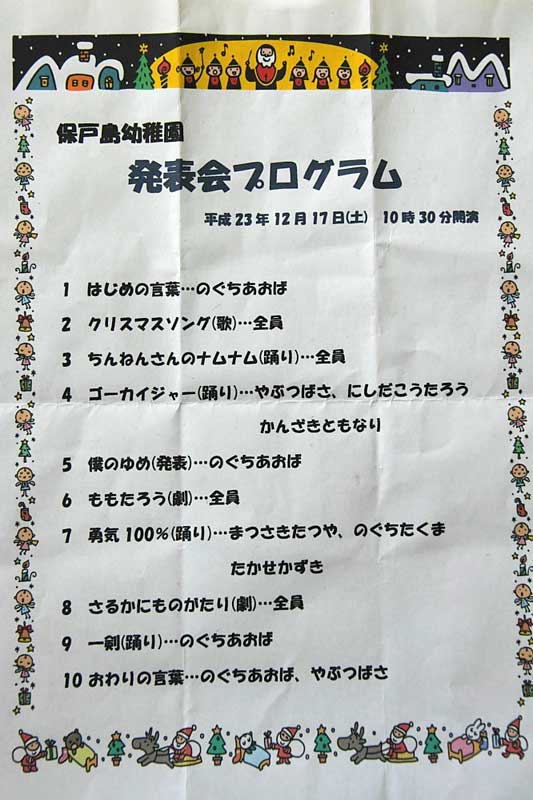 保戸島幼稚園
発表会プログラム
平成23年12月17日(土) 10時30分開演
1 はじめの言葉…のぐちあおば
2 クリスマスソング(歌)…全員
3 ちんねんさんのナムナム(踊り)…全員
4 ゴーカイジャー(踊り)…やぶつばさ、にしだこうたろう
かんざきともなり
5 僕のゆめ(発表)…のぐちあおば
6 ももたろう(劇)…全員
7 勇気100%(踊り)…まつさきたつや、のぐちたくま
たかせかずき
8 さるかにものがたり(劇)…全員
9 一剣(踊り)…のぐちあおば
10 おわりの言葉…のぐちあおば、やぶつばさ